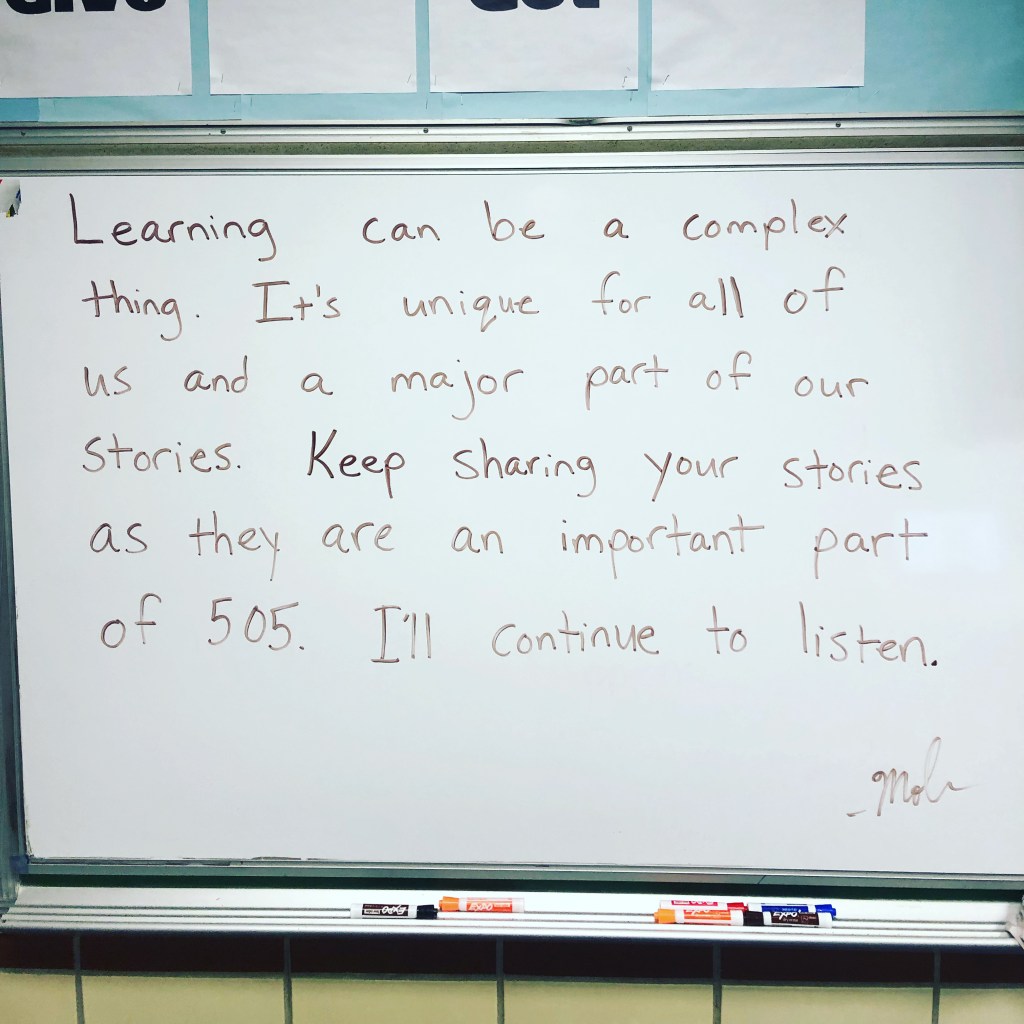 Learning can be a complex
thing. It's unique for all of
us and a major part of our
stories. Keep sharing your stories
as they are an important part
of 505. I'll continue to listen.
EXPO
EXPO
EXPO
EXPO